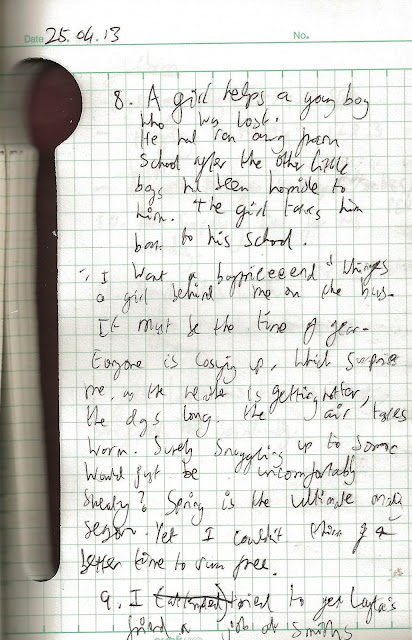 Date 25.04.13 No.
8. A girl helps a young boy
who was lost.
He had ran away from
school after the other little
boys had been horrible to
him. The girl takes him
back to his school.
"I want a boyfrieeeend" whinges
a girl behind me on the bus.
It must be the time of year.
Everyone is cosying up, which surprises
me, as the weather is getting hotter,
the days long. the air tastes
warm. Surely snuggling up to someone
would just be uncomfortably
sweaty? Spring is the ultimate
season. Yet I couldn't think of a
better time to run free.
9. I (attempted) tried to get Layla's
friend a job at Smiths